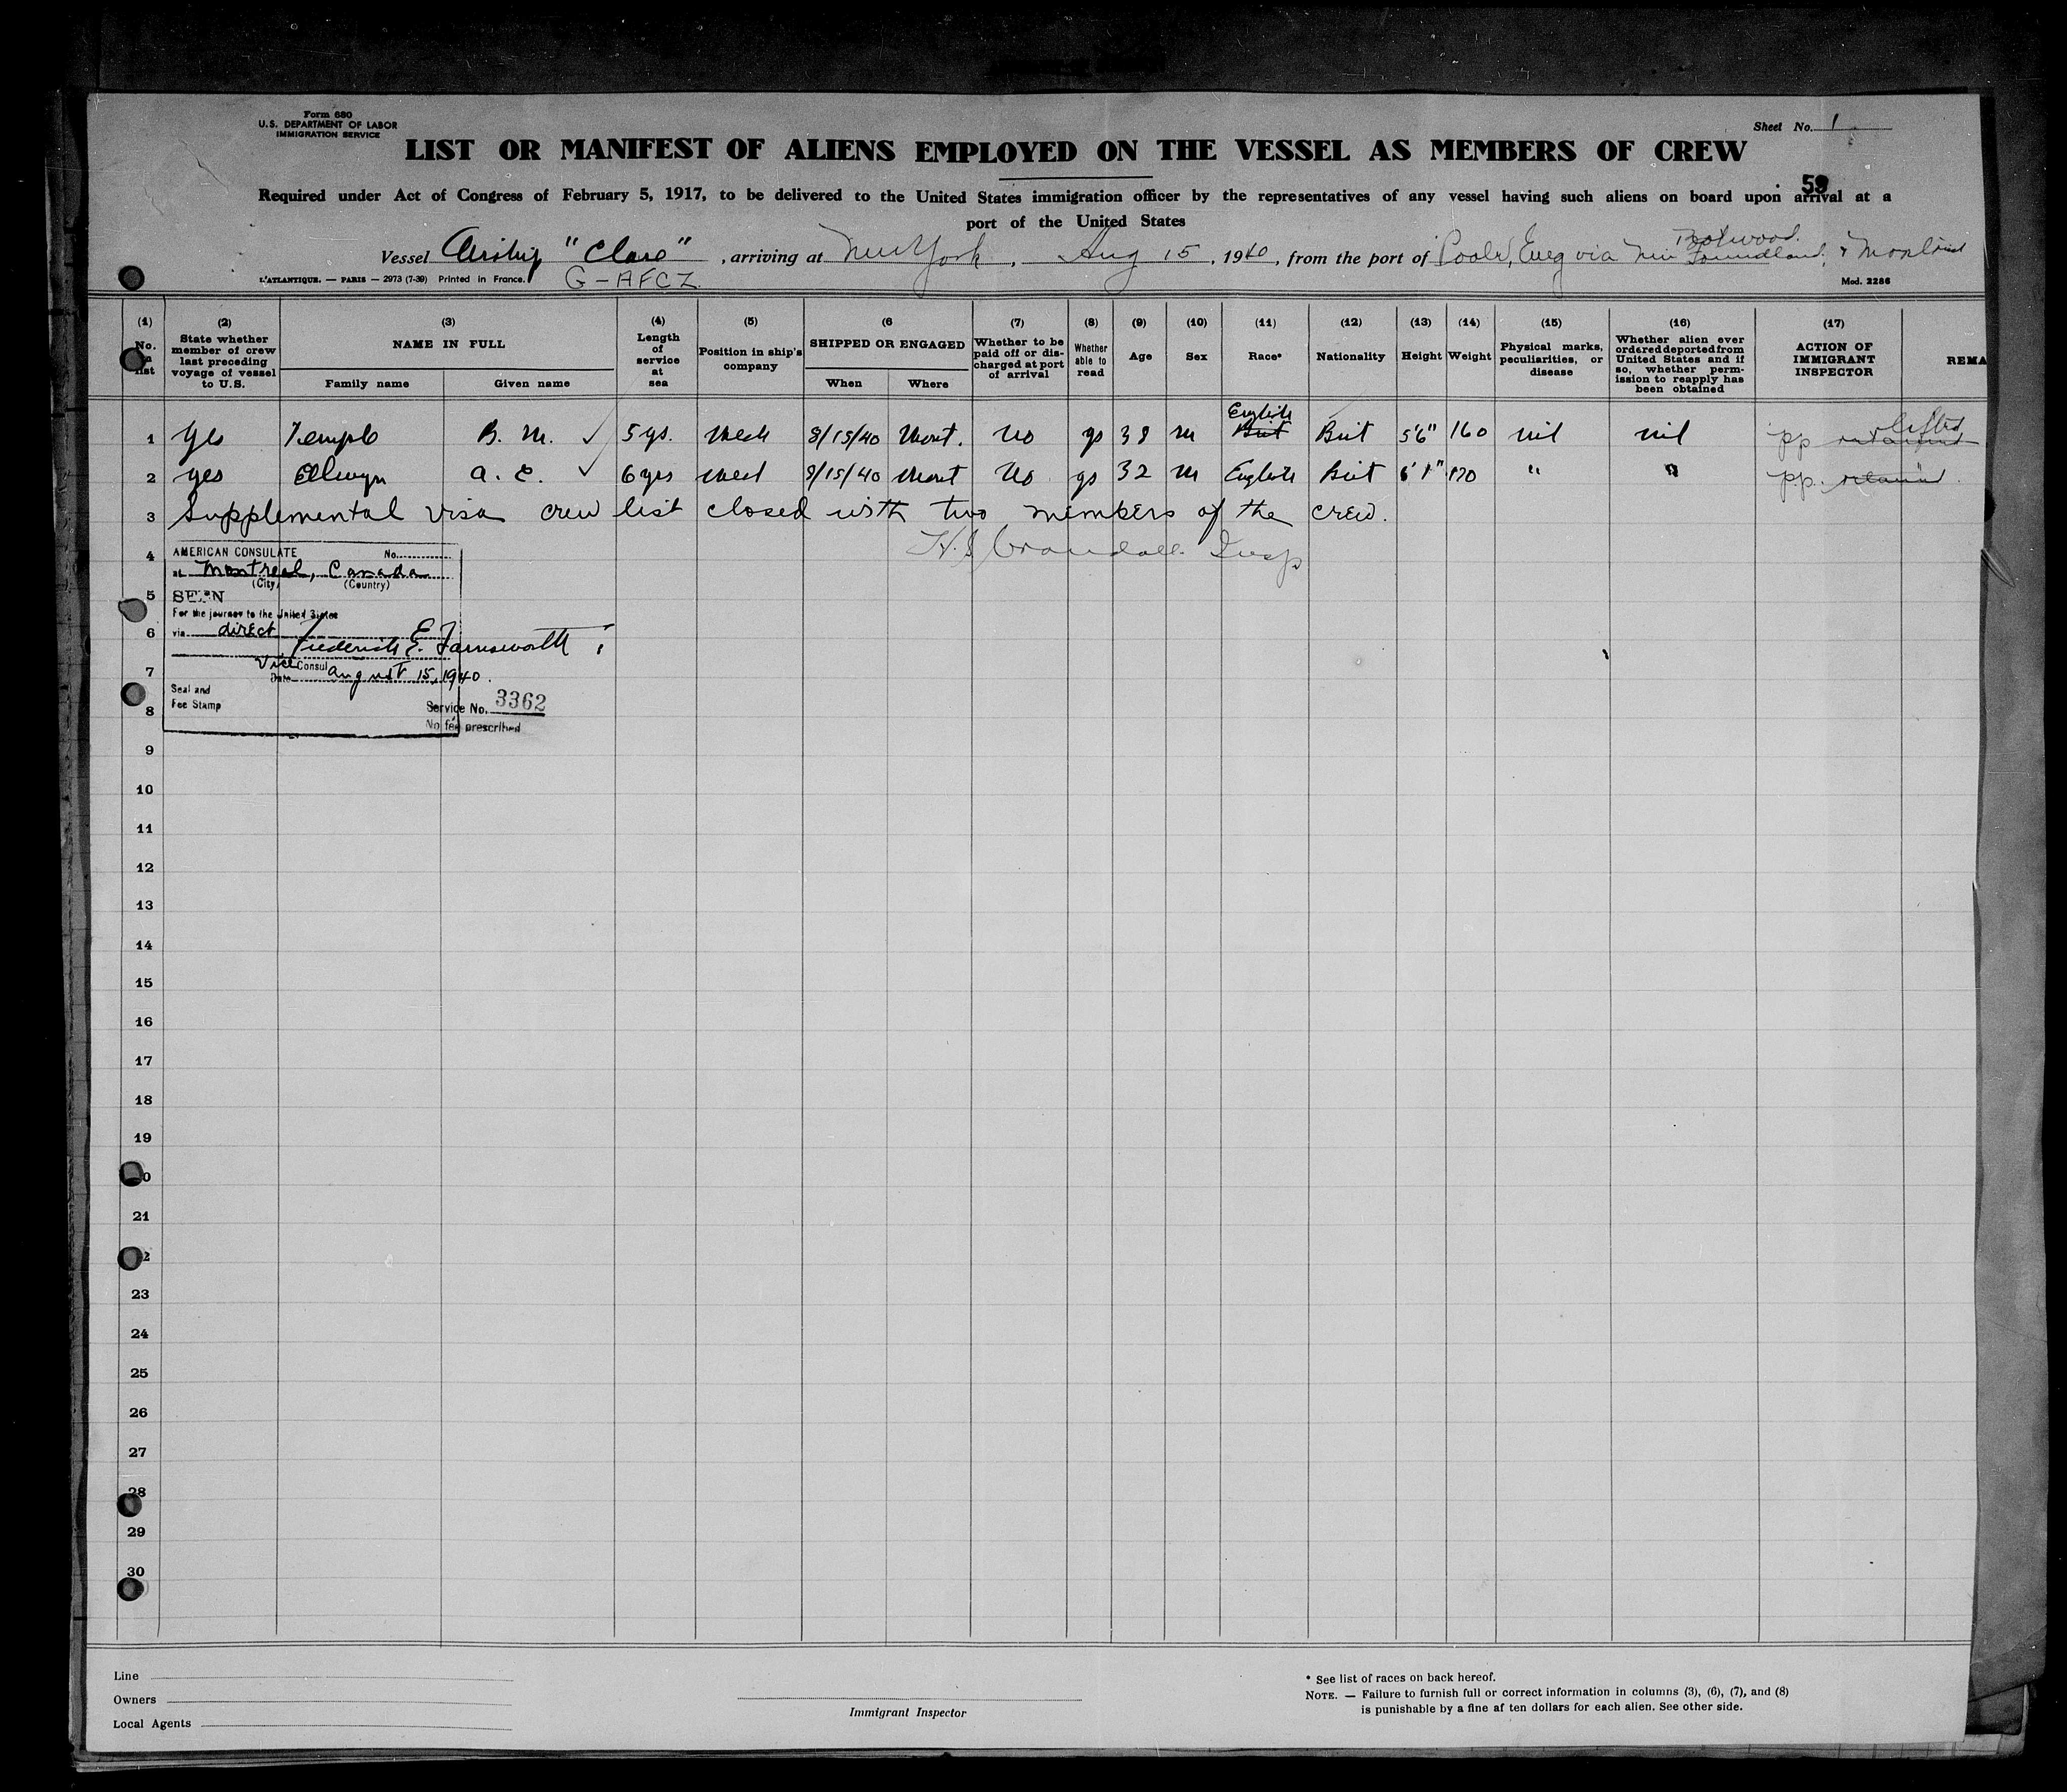 Form 680
U.S. DEPARTMENT OF LABOR
IMMIGRATION SERVICE
Sheet No. 1
LIST OR MANIFEST OF ALIENS EMPLOYED ON THE VESSEL AS MEMBERS OF CREW
59
Required under Act of Congress of February 5, 1917, to be delivered to the United States immigration officer by the representatives of any vessel having such aliens on board upon arrival at a
port of the United States
Botwood
Vessel Airship "Clare", arriving at New York, Aug 15, 1940, from the port of Poole, Eng via New Foundland, & Montreal
L'ATLANTIQUE. — PARIS — 2973 (7-39) Printed in France. G-AFCZ Mod. 2286
(1) No. in list
(2) State whether member of crew last preceding voyage of vessel to U.S.
(3) NAME IN FULL Family name Given name
(4) Length of service at sea
(5) Position in ship's company
(6 SHIPPED OR ENGAGED When Where
(7) Whether to be paid off or discharged at port of arrival
(8) Whether able to read
(9) Age
(10) Sex
(11) Race*
(12) Nationality
(13) Height
(14) Weight
(15) Physical marks, peculiarities, or disease
(16) Whether alien ever ordered deported from United States and if so, whether permission to reapply has been obtained
(17) ACTION OF IMMIGRANT INSPECTOR
REMA
English lifted
1 Yes Temple B. M. ✓ 5 ys. Mech 8/15/40 Mont. No ys 38 M Brit Brit 5'6" 160 nil nil pp retained
2 yes Elwyn A. E. ✓ 6 yrs Med 8/15/40 Mont No ys 32 M English Brit 6'1" 170 " " pp. retained
3 Supplemental visa crew list closed with two members of the crew.
H. J. Crandall Insp
4
AMERICAN CONSULATE No.
at Montreal, Canada
(City) (Country)
5
SEEN
For the journey to the United States
6
via direct
Frederick E. Farnsworth
Vice Consul
7
Date August 15, 1940.
Seal and
Fee Stamp
8
Service No. 3362
No fee prescribed
9
10
11
12
13
14
15
16
17
18
19
20
21
22
23
24
25
26
27
28
29
30
Line
Owners
Local Agents
Immigrant Inspector
* See list of races on back hereof.
NOTE. — Failure to furnish full or correct information in columns (3), (6), (7), and (8)
is punishable by a fine af ten dollars for each alien. See other side.